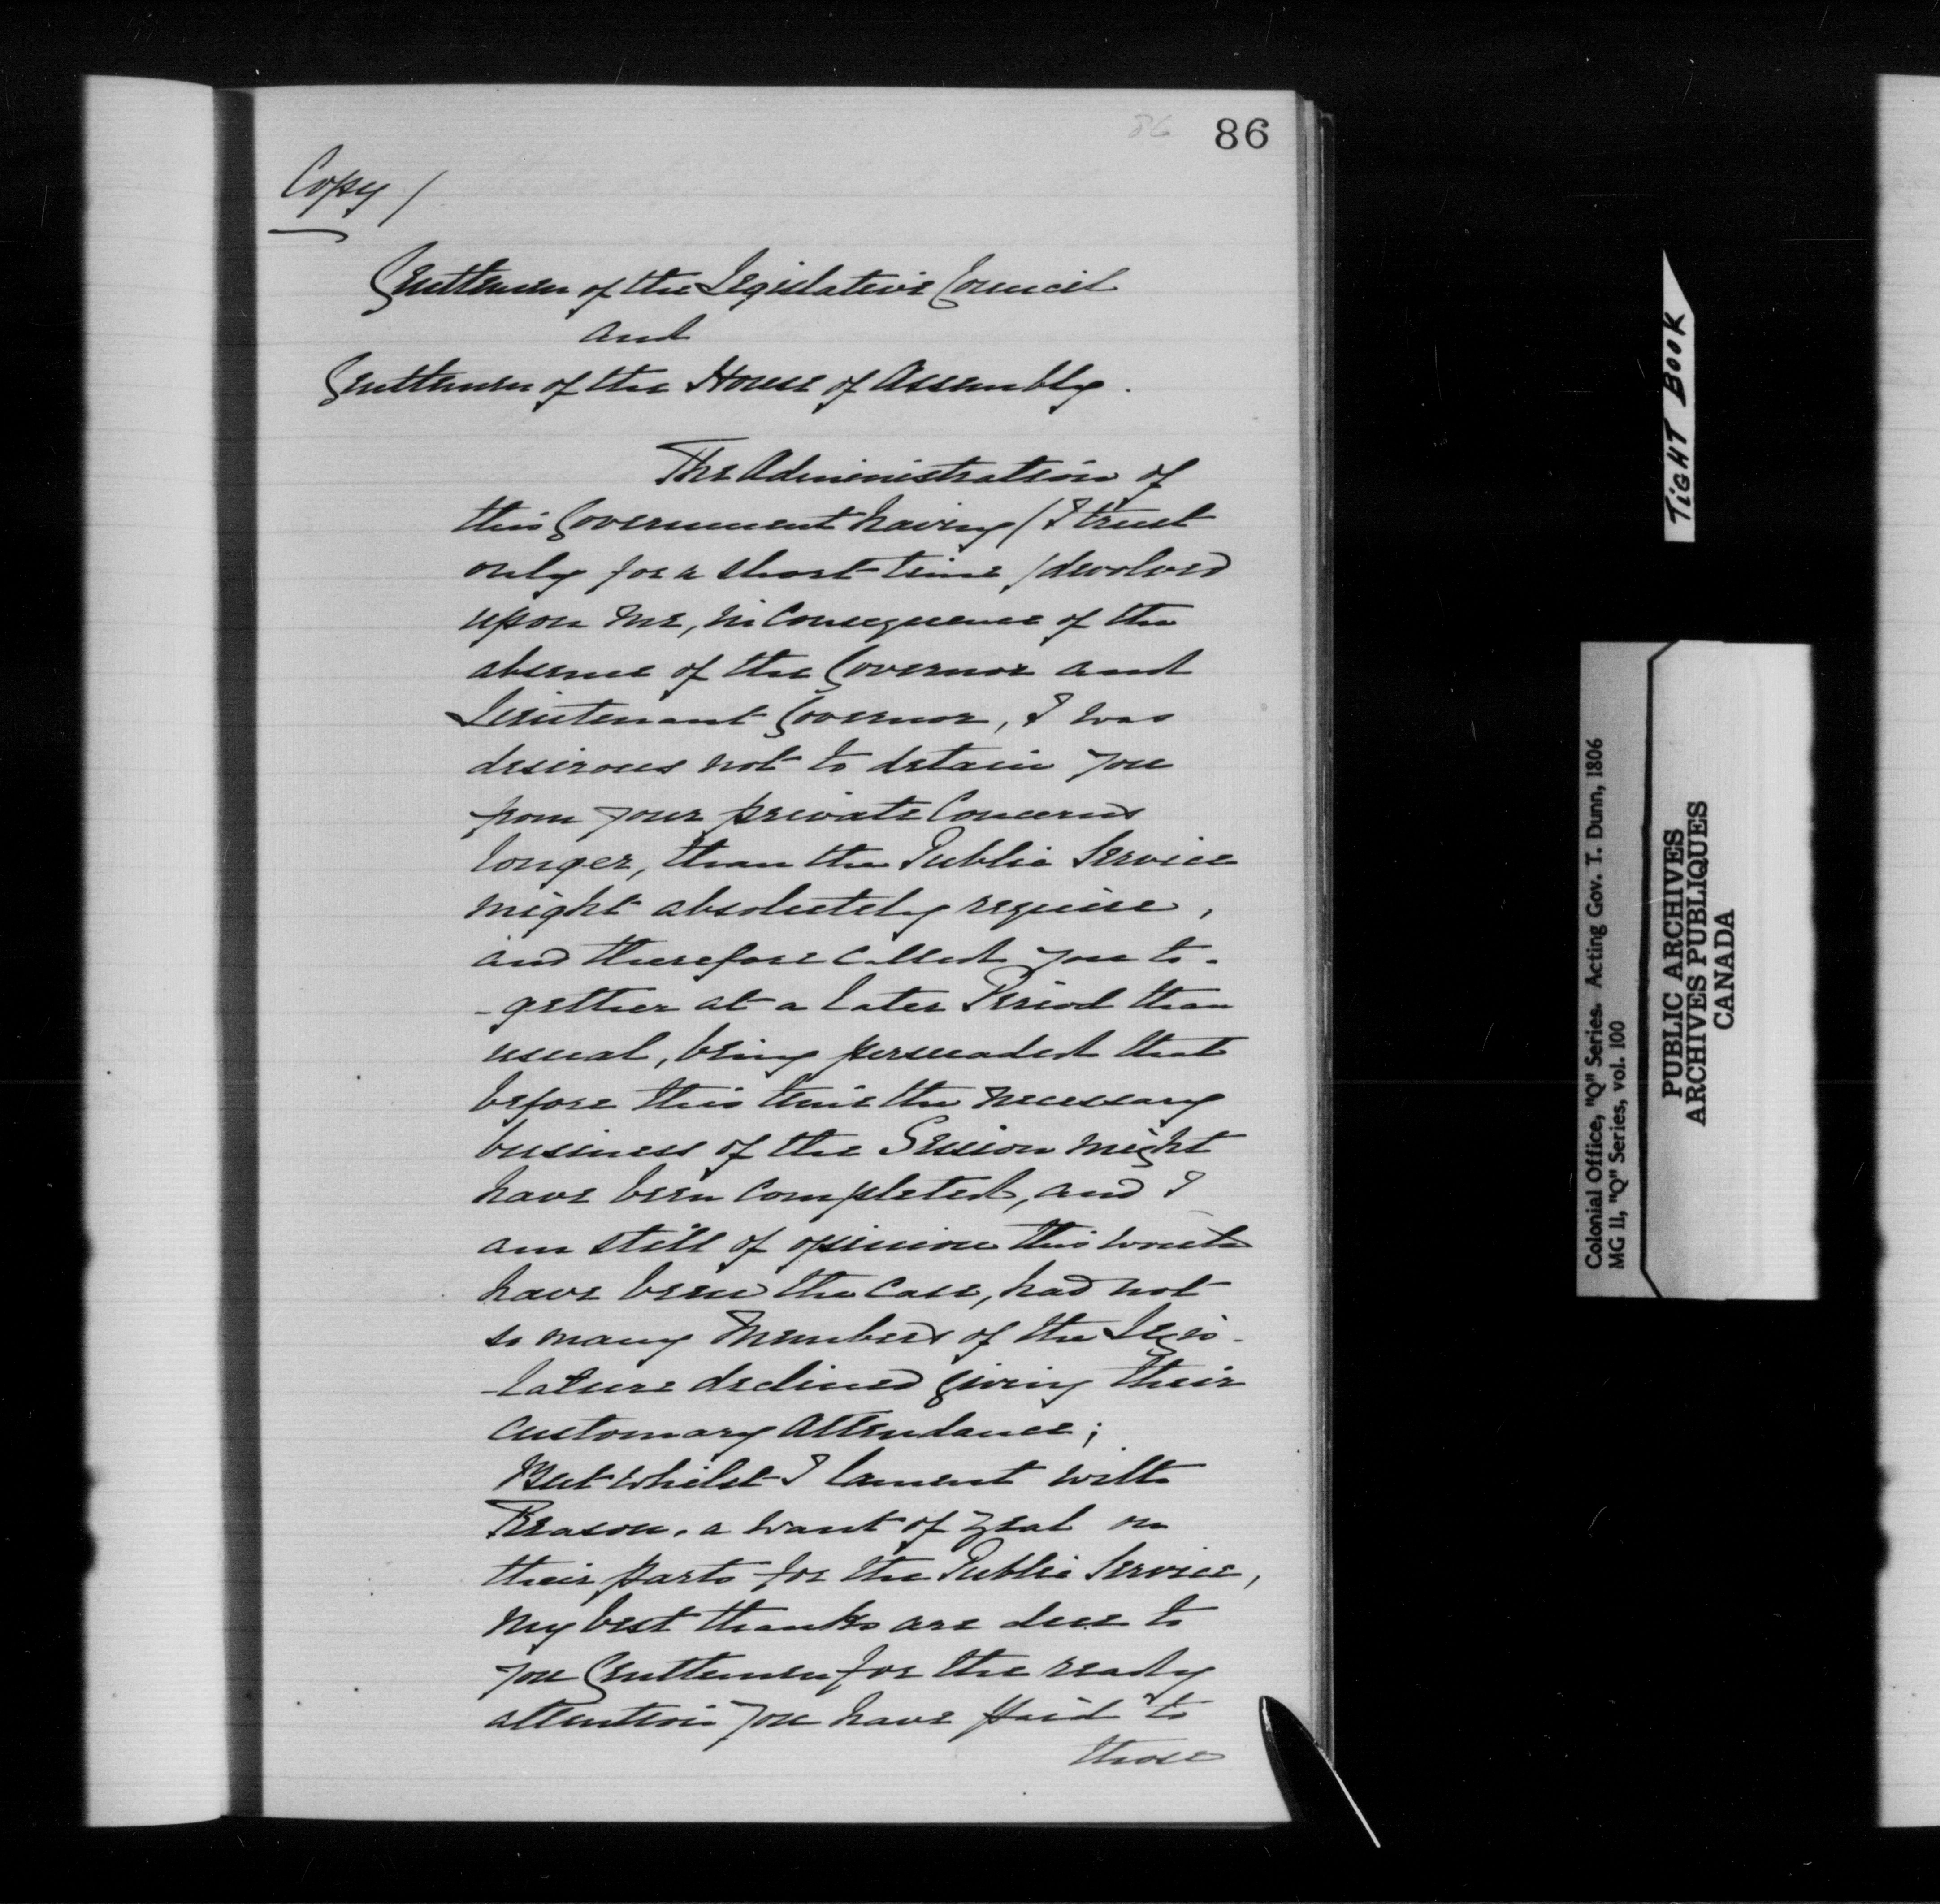 86 86
Copy /
Gentlemen of the Legislative Council
and
Gentlemen of the House of Assembly.
The Administration of
this Government having (I trust
only for a short time) devolved
upon me, in Consequence of the
absence of the Governor and
Lieutenant Governor, I was
desirous not to detain you
from your private Concerns
longer, than the Public Service
might absolutely require,
and therefore called you to-
-gether at a later Period than
usual, being persuaded that
before this time the necessary
business of the Session might
have been completed, and I
am still of opinion this would
have been the case, had not
so many Members of the Legis-
-lature declined giving their
customary attendance;
But whilst I lament with
Reason, a want of zeal on
their parts for the Public Service,
My best thanks are due to
you Gentlemen for the ready
attention you have paid to
those
TIGHT BOOK
Colonial Office, "Q" Series. Acting Gov. T. Dunn, 1806
MG 11, "Q" Series, vol. 100
PUBLIC ARCHIVES
ARCHIVES PUBLIQUES
CANADA